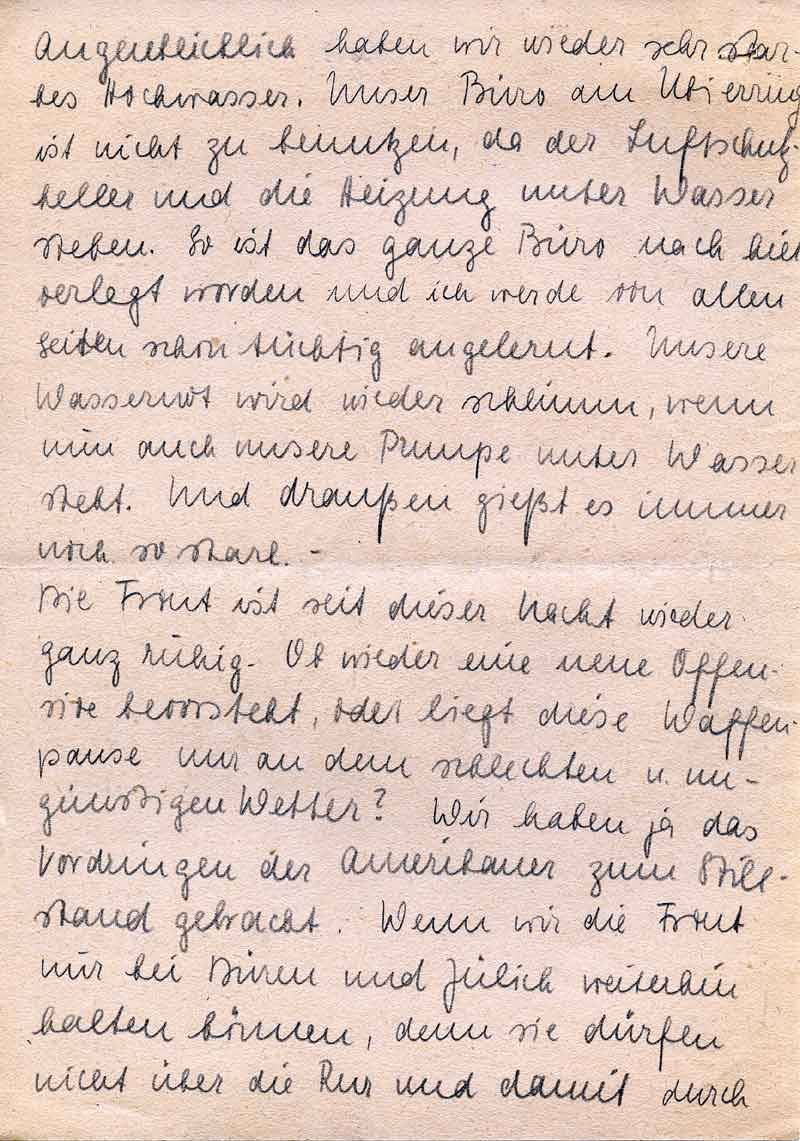 Augenblicklich haben wir wieder sehr star-
kes Hochwasser. Unser Büro am Ubierring
ist nicht zu benutzen, da der Luftschutz-
keller und die Heizung unter Wasser
stehen. So ist das ganze Büro nach hier
verlegt worden und ich werde von allen
Seiten schon tüchtig angelernt. Unsere
Wassernot wird wieder schlimm, wenn
nun auch unsere Pumpe unter Wasser
steht. Und draußen gießt es immer
noch so stark. -
Die Front ist seit dieser Nacht wieder
ganz ruhig. Ob wieder eine neue Offen-
sive bevorsteht, oder liegt diese Waffen-
pause nur an dem schlechten u. un-
günstigen Wetter? Wir haben ja das
Vordringen der Amerikaner zum Still-
stand gebracht. Wenn wir die Front
nur bei Düren und Jülich weiterhin
halten können, denn sie dürfen
nicht über die Rur und damit durch